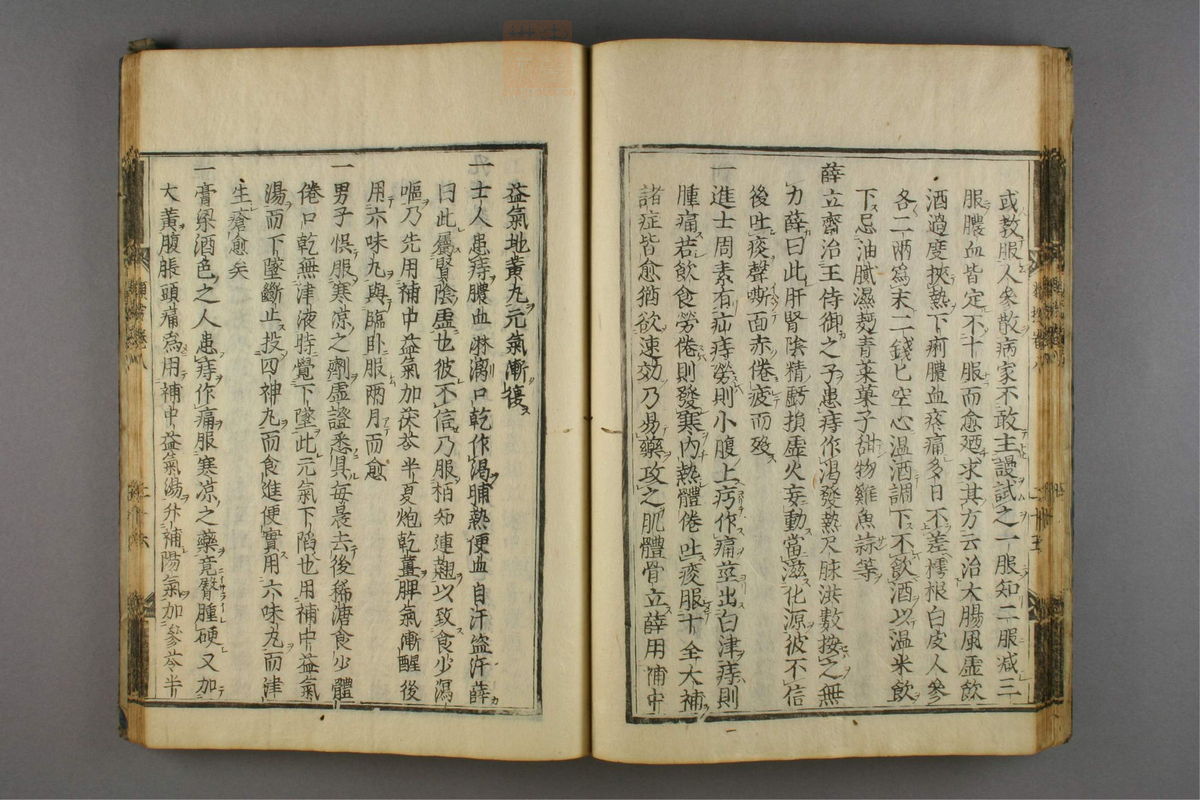 或教服人參散病家不敢主謾試之一服知二服减三
服膿血皆定不十服而愈廼求其方云治大腸風虛飲
酒過度挾熱下痢膿血疼痛多日不差樗根白皮人參
各二兩爲末二錢匕空心溫酒調下不飲酒以溫米飲
下忌油膩濕麪青菜菓子甜物雞魚蒜等
薛立齋治王侍御之子患痔作渴發熱尺脉洪數按之無
力薛曰此肝腎陰精虧損虛火妄動當滋化源彼不信
後吐痰聲嘶面赤倦疲而歿
一進士周素有疝痔勞則小腹上疞作痛莖出白津痔則
腫痛若飲食勞倦則發寒內熱體倦吐痰服十全大補
諸症皆愈猶欲速効乃易藥攻之肌體骨立薛用補中
益氣地黄丸元氣漸復
一士人患痔膿血淋漓口乾作渴晡熱便血自汗盜汗薛
曰此屬腎陰虛也彼不信乃服栢知連翹以致食少瀉
嘔乃先用補中益氣加茯苓半夏炮乾薑脾氣漸醒後
用六味丸與臨臥服兩月而愈
一男子倶服寒凉之劑虛證悉具每晨去後稀溏食少體
倦口乾無津液時覺下墜此元氣下陷也用補中益氣
湯而下墜斷止投四神丸而食進便實用六味丸而津
生瘡愈矣
一膏梁酒色之人患痔作痛服寒凉之藥竟臀腫硬又加
大黄腹脹頭痛爲用補中益氣湯升補陽氣加參苓半